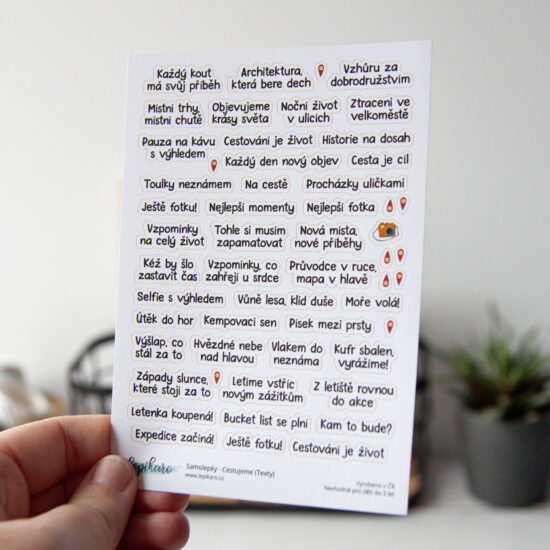 Každý kout
má svůj příběh
Architektura,
která bere dech
Vzhůru za
dobrodružstvím
Místní trhy,
místní chutě
Objevujeme
krásy světa
Noční život
v ulicích
Ztraceni ve
velkoměstě
Pauza na kávu
s výhledem
Cestování je život
Historie na dosah
Každý den nový objev
Cesta je cíl
Toulky neznámem
Na cestě
Procházky uličkami
Ještě fotku!
Nejlepší momenty
Nejlepší fotka
Vzpomínky
na celý život
Tohle si musím
zapamatovat
Nová místa,
nové příběhy
Kéž by šlo
zastavit čas
Vzpomínky, co
zahřejí u srdce
Průvodce v ruce,
mapa v hlavě
Selfie s výhledem
Vůně lesa, klid duše
Moře volá!
Útěk do hor
Kempovací sen
Písek mezi prsty
Výšlap, co
stál za to
Hvězdné nebe
nad hlavou
Vlakem do
neznáma
Kufr sbalen,
vyrážíme!
Západy slunce,
které stojí za to
Letíme vstříc
novým zážitkům
Z letiště rovnou
do akce
Letenka koupená!
Bucket list se plní
Kam to bude?
Expedice začíná!
Ještě fotku!
Cestování je život
lepikaro
Samolepky - Cestujeme (Texty)
www.lepikaro.cz
Vyrobeno v ČR
Nevhodné pro děti do 3 let